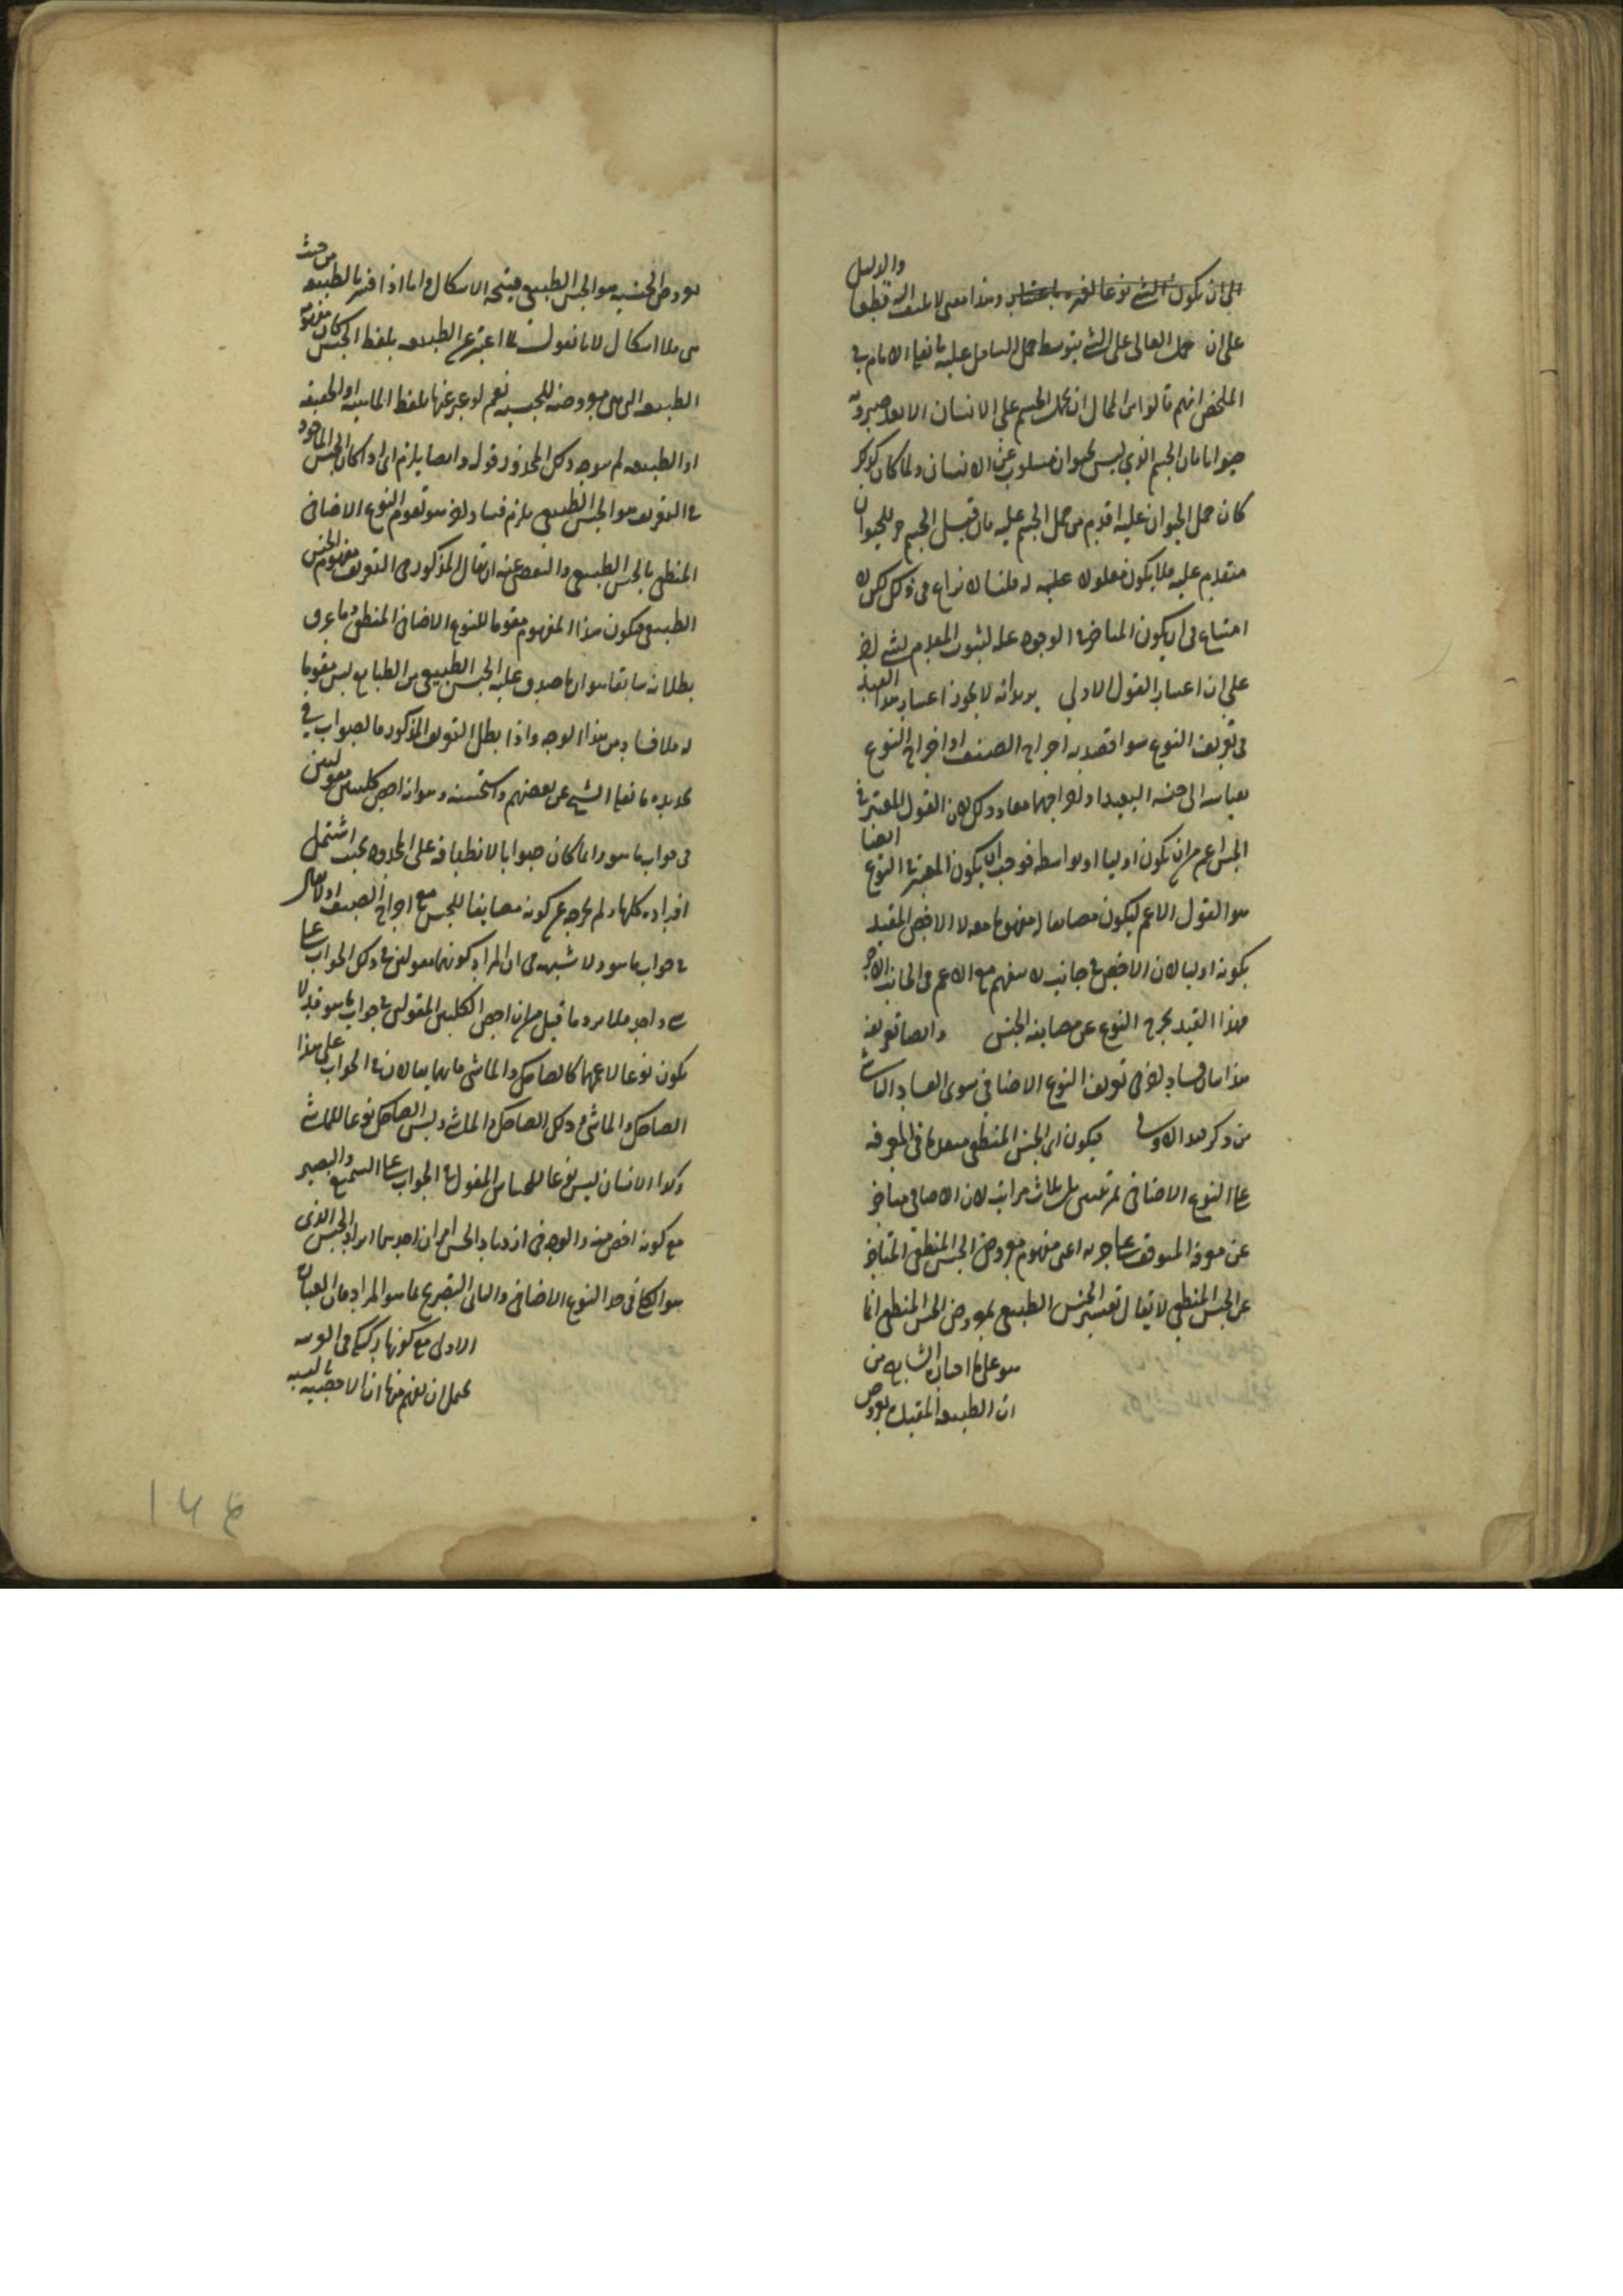 الى ان يكون الشئ نوعا لغيره باعتبار وهذا معنى لا يلتفت اليه قطعا والدليل
على ان حمل العالى على الشئ بتوسط حمل السافل عليه ما نقله الامام فى
الملخص انهم قالوا من المحال ان يحمل الجسم على الانسان الا بعد صيرورته
حيوانا فان الجسم الذى ليس بحيوان مسلوب عن الانسان ولما كان كذلك
كان حمل الحيوان عليه اقدم من حمل الجسم عليه فان قيل الجسم جزء للحيوان
متقدم عليه فلا يكون معلولا له قلنا لا نزاع فى ذلك لكن لا
امتناع فى ان يكون المتاخر فى الوجود علة لثبوت المتقدم لشئ اخر
على ان اعتبار القول الاولى يريد انه لا يجوز اعتبار هذا القيد
فى تعريف النوع سواء قصد به اخراج الصنف او اخراج النوع
بقياسه الى جنسه البعيد او اخراجهما معا وذلك لان القول المعتبر فى
الجنس اعم من ان يكون اوليا او بواسطة فوجب ان يكون المعتبر فى النوع ايضا
هو القول الاعم ليكون مضايفا له مفهوما معه لا الاخص المقيد
بكونه اوليا لان الاخص فى جانب لا يفهم مع الاعم فى الجانب الاخر
فهذا القيد يخرج النوع عن مضايفة الجنس وايضا تعريفه
هذا بيان فساد اخر فى تعريف النوع الاضافى سوى الفساد الناشئ
من ذكر قيد الاولى فيكون اى الجنس المنطقى متقدما فى المعرفة
على النوع الاضافى بمرتبتين بل بثلاث مراتب لان الاضافى متاخر
عن معرفة المتوقف على جزئه اعنى مفهوم معروض الجنس المنطقى المتاخر
عن الجنس المنطقى لا يقال تفسير الجنس الطبيعى بمعروض الجنس المنطقى انما
هو على ما اختاره الشارح من
ان الطبيعة المقيدة بعروض
معروض الجنسية هو الجنس الطبيعى فيتجه الاشكال واما اذا فسر بالطبيعة من حيث
هى فلا اشكال لانا نقول لما اعتبر عن الطبيعة بلفظ الجنس كان مفهومه
الطبيعة التى هى معروضة للجنسية نعم لو عبر عنها بلفظ الماهية او الحقيقة
او الطبيعة لم يتوجه ذلك المحذور قوله وايضا يلزم اى اذا كان الجنس الماخوذ
فى التعريف هو الجنس الطبيعى يلزم فساد اخر هو تقوم النوع الاضافى
المنطقى بالجنس الطبيعى والتفصى عنه ان يقال المذكور فى التعريف مفهوم الجنس
الطبيعى فيكون هذا المفهوم مقوما للنوع الاضافى المنطقى وما عرف
بطلانه سابقا هو ان ما صدق عليه الجنس الطبيعى من الطبايع ليس مقوما
له فلا فساد من هذا الوجه واذا بطل التعريف المذكور فالصواب فى
تحديده ما نقله الشيخ عن بعضهم واستحسنه وهو انه اخص كليين مقولين
فى جواب ما هو وانما كان صوابا لانطباقه على المحدود بحيث اشتمل
افراده كلها ولم يخرج عن كونه مضايفا للجنس مع اخراج الصنف اذ لا يقال
فى جواب ما هو ولا شبهة فى ان المراد كونهما مقولين فى ذلك الجواب على
شئ واحد فلا يرد ما قيل من ان اخص الكليين المقولين فى جواب ما هو قد لا
يكون نوعا لاعمهما كالضاحك والماشى فانهما يقالان فى الجواب على هذا
الضاحك والماشى وذلك الضاحك والماشى وليس الضاحك نوعا للماشى
وكذا الانسان ليس نوعا للحساس المقول فى الجواب على السميع والبصير
مع كونه اخص منه والوجه فى ازدياد الحسن امران احدهما ايراد الجنس الذى
هو الكلى فى حد النوع الاضافى والثانى التصريح بما هو المراد فان العبارة
الاولى مع كونها ركيكة فى العربية
يحتمل ان يفهم منها ان الاخصية بالنسبة